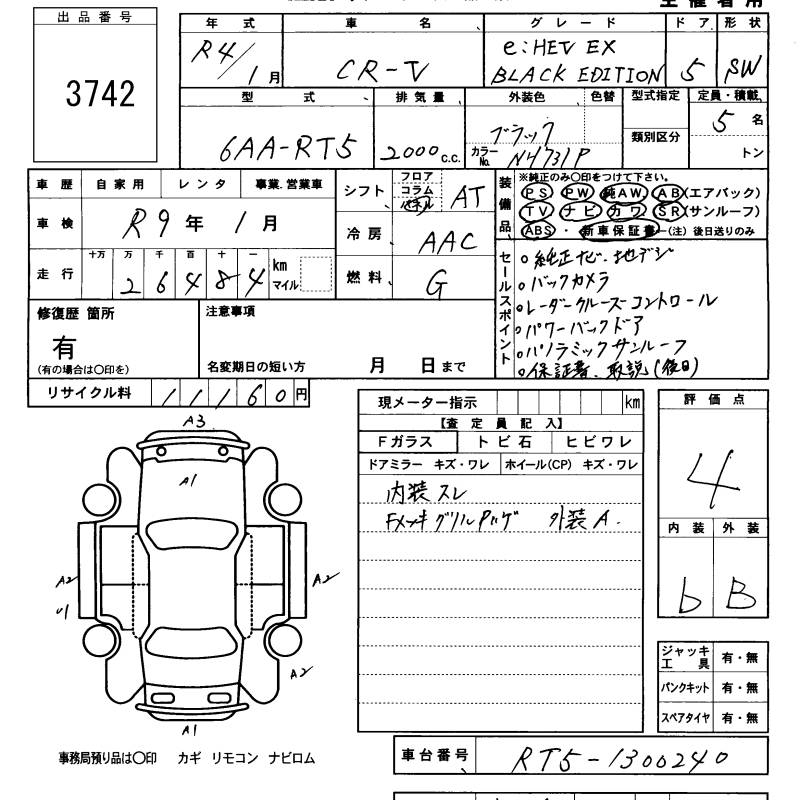 出品番号
3742
年式 車名 グレード ドア 形状
R4/1月 CR-V e:HEV EX BLACK EDITION 5 SW
型式 排気量 外装色 色替 型式指定 定員・積載
類別区分
6AA-RT5 2000 c.c. ブラック カラーNo. N4731P 5名
トン
車歴 自家用 レンタ 事業.営業車
車検 R9年 1月
走行 十万 万 千 百 十 一
2 6 4 8 4 km マイル
シフト フロア コラム パネル AT
冷房 AAC
燃料 G
装備品 ※純正のみ○印をつけて下さい。
PS PW 純AW AB(エアバック)
TV ナビ カワ SR(サンルーフ)
ABS ・ 新車保証書 (注)後日送りのみ
セールスポイント
○純正ナビ、地デジ
○バックカメラ
○レーダークルーズコントロール
○パワーバックドア
○パノラミックサンルーフ
○保証書、取説(後日)
修復歴 箇所
有
(有の場合は○印を)
注意事項
名変期日の短い方 月 日まで
リサイクル料 11160円
現メーター指示 km
【査定員記入】
Fガラス トビ石 ヒビワレ
ドアミラー キズ・ワレ ホイール(CP) キズ・ワレ
内装スレ
Fメッキグリルハゲ 外装A.
評価点
4
内装 外装
b B
A3
A1
A2
A2
A2
A1
ジャッキ工具 有・無
パンクキット 有・無
スペアタイヤ 有・無
事務局預り品は○印 カギ リモコン ナビロム
車台番号 RT5-1300240